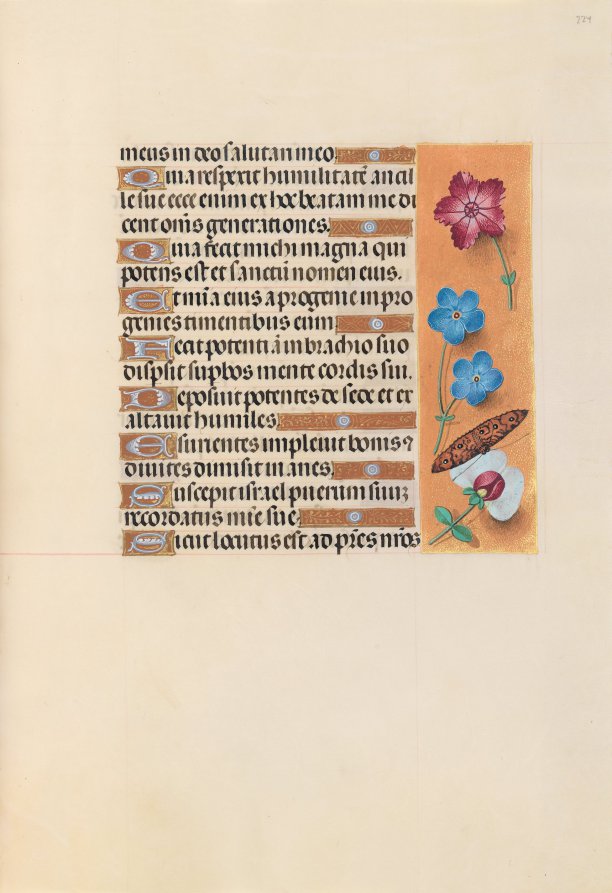 224
meus in deo salutari meo.
Quia respexit humilitatē ancil
le sue ecce enim ex hoc beatam me di
cent om̄s generationes.
Quia fecit michi magna qui
potens est et sanctū nomen eius.
Et mīa eius a progenie in pro
genies timentibus eum
Fecit potentiā in brachio suo
dispsit supbos mente cordis sui.
Deposuit potentes de sede et ex
altavit humiles
Esurientes implevit bonis ⁊
divites dimisit inanes.
Suscepit israel puerum suūʒ
recordatus mīe sue.
Sicut locutus est ad p̄res nr̄os